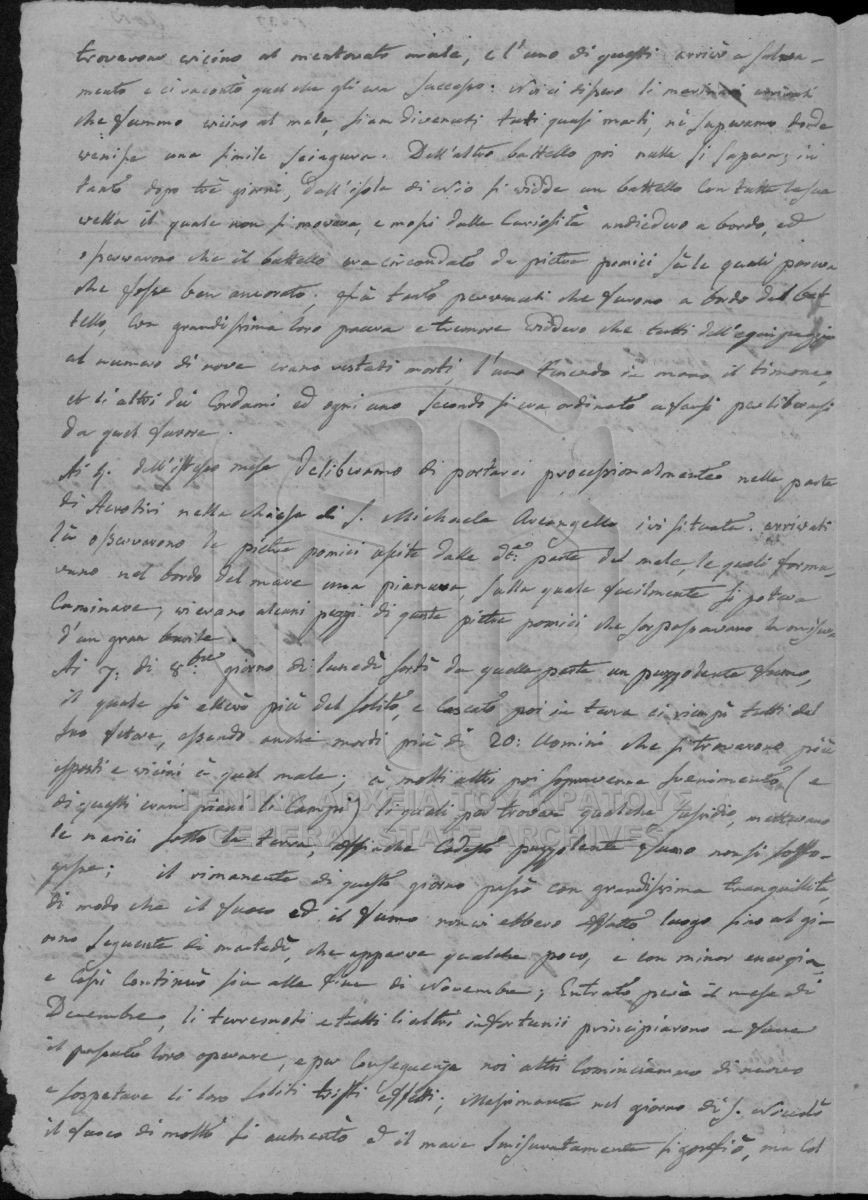 trovarono vicino al mentovato male, e l'uno di questi arrivò a salva-
mento e ci racontò quel che gli era successo: Noi ci dissero li marinari
che fummo vicino al male, siam divenuti tutti quasi morti, nè sapevamo donde
venisse una simile sciagura. Dell'altro battello poi nulla si sapeva; in
tanto dopo trè giorni, dall'isola di Nio si vidde un battello con tutta la sua
vella il quale non si moveva, e mossi dalla curiosità andiedero a bordo, ed
osservarono che il battello era circondato da pietre pomici sù le quali pareva
che fosse ben ancorato; frà tanto pervenuti che furono a bordo del bat
tello, con grandissima loro paura e tremore viddero che tutti dell'equipaggio
al numero di nove erano restati morti l'uno tenendo in mano il timone,
et li altri di cordami ed ogni uno secondo si era ordinato a farsi per liberarsi
da quel furore.
Ai 4. dell'istesso mese deliberammo di portarci processionalmente nella parte
di Acrotiri nella chiesa di S. Michaele Arcangello ivi situata. arrivati
là osservarono le pietre pomici uscite dalla dt.ª parte del male, le quali forma-
vano nel bordo del mare una pianura, sulla quale facilmente si poteva
caminare; vi erano alcuni pezzi di queste pietre pomici che sorpassavano la misura
d'un gran barile.
Ai 7. di 8.bre giorno di lunedì sortì da quella parte un puzzolente fumo,
il quale si ellevò più del solito, e cascato poi in terra ci riempì tutti del
suo fetore, essendo anche morti più di 20: Uomini che si trovarono più
esposti e vicini à quel male. à molti altri poi sopravenne svenimento (e
di questi eran pieni li campi) li quali per trovare qualche sussidio, mettevano
le narici sotto la terra, affinche codesto puzzolente fumo non li soffo-
gasse; il rimanente di questo giorno passò con grandissima tranquillità,
di modo che il fuoco ed il fumo non vi ebbero affatto luogo sino al gi-
orno seguente di martedì, che apparve qualche poco, e con minor energia,
e così continuò sin alla fine di Novembre; Entrato però il mese di
Decembre, li terremoti e tutti li altri infortunii principiarono a fare
il passato loro operare, e per conseguenza noi altri cominciammo di nuovo
a sospettare li loro soliti tristi effetti; Massimante nel giorno di S. Nicolò
il fuoco di molto si aumentò e il mare smisuratamente si gonfiò, ma col
ΓΕΝΙΚΑ ΑΡΧΕΙΑ ΤΟΥ ΚΡΑΤΟΥΣ
GENERAL STATE ARCHIVES